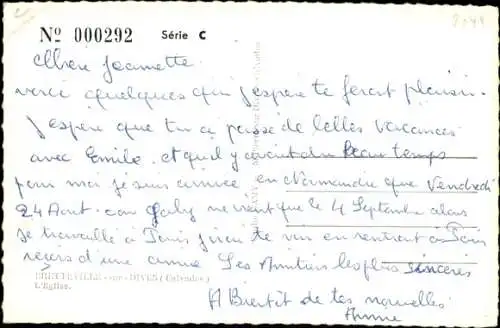 Nº 000292 Série C
Chère Jeannette
voici quelques qui j'espère te feront plaisir.
J'espère que tu a passé de belles vacances
avec Emile. et qu'il y avait du beau temps
pour moi je suis arrivée en Normandie que Vendredi
24 Aout. car Gaby ne vient que le 4 Septembre alors
je travaille à Paris
reçois d'une amie Ses Amitiés les plus sincères
BRETTEVILLE-sur-DIVES (Calvados)
L'Eglise.
A Bientôt de tes nouvelles
Annie